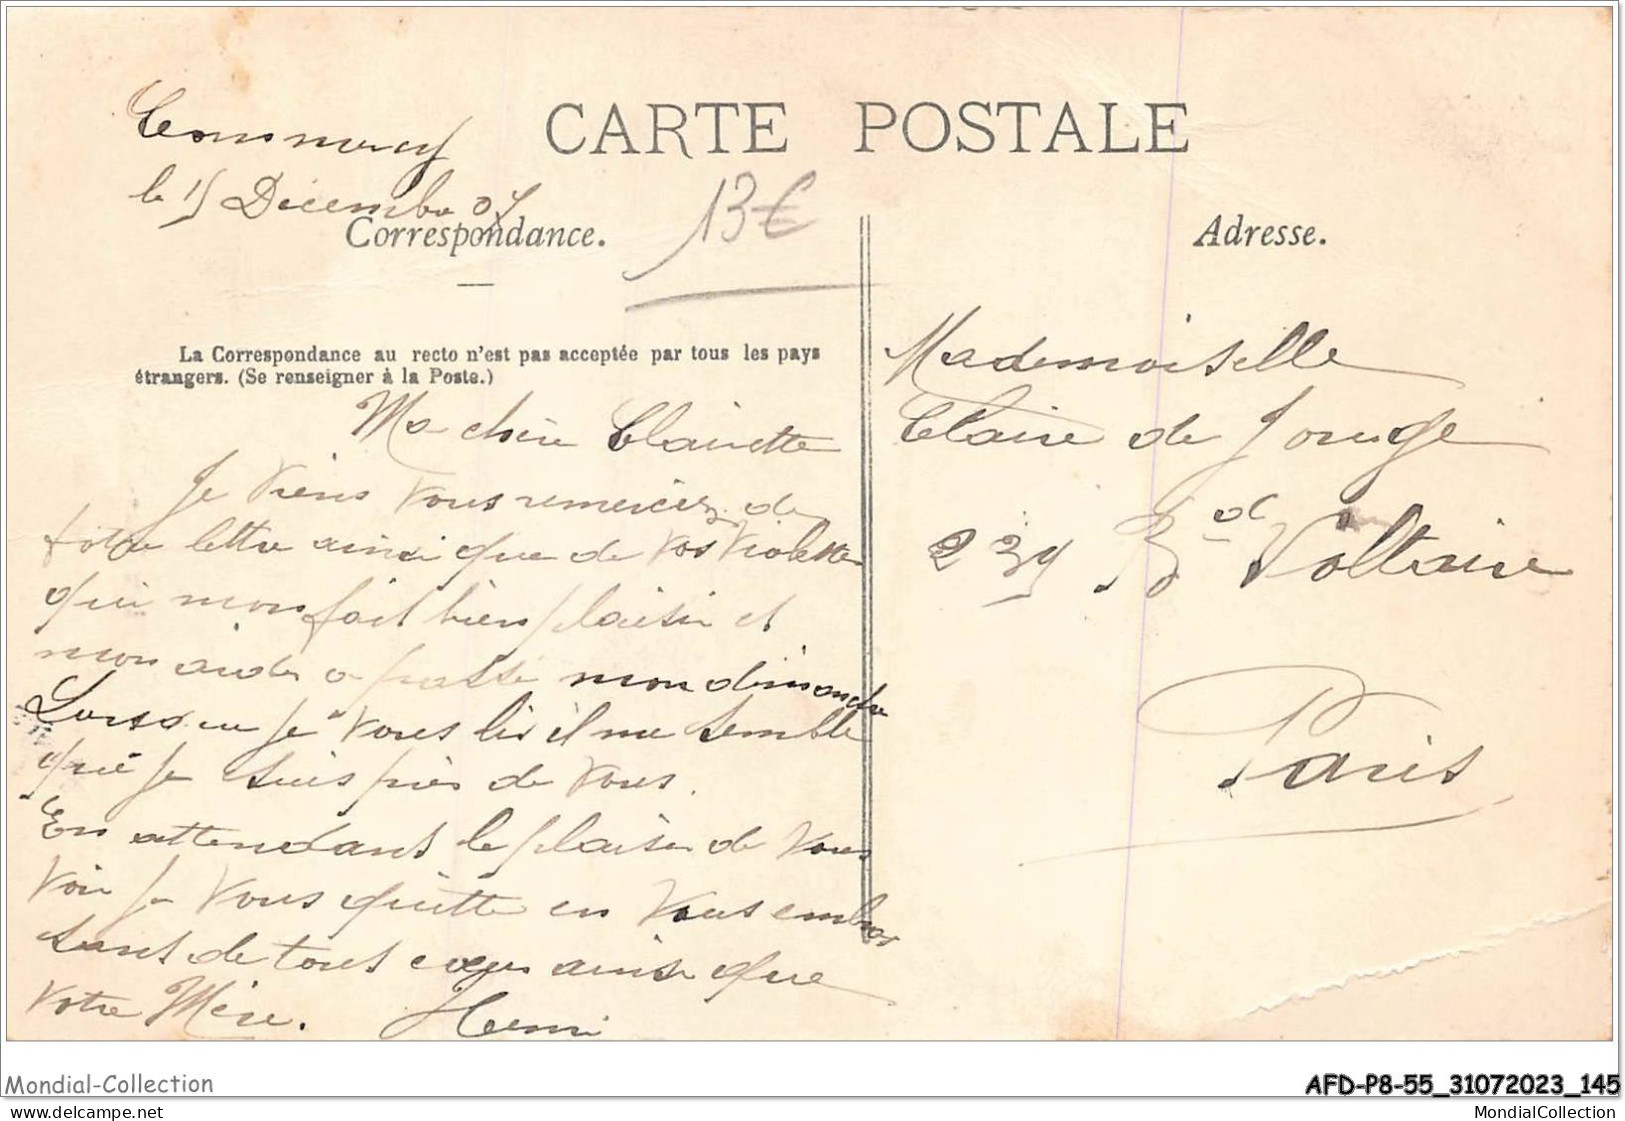 CARTE POSTALE
Commercy
le 15 Décembre 07
13€
Correspondance.
Adresse.
La Correspondance au recto n'est pas acceptée par tous les pays
étrangers. (Se renseigner à la Poste.)
Ma chère Clairette
Je viens vous remercier de
votre lettre ainsi que de vos violettes
qui mon fait bien plaisir et
mon aider a passé mon dimanche
Lorsque je vous lis il me semble
que je suis près de vous.
En attendant le plaisir de vous
voir je vous quitte en vous embras
sant de tout cœur ainsi que
votre Mère. Henri
Mademoiselle
Claire de Jonge
239 Bd Voltaire
Paris
Mondial-Collection
AFD-P8-55_31072023_145
delcampe.net
MondialCollection